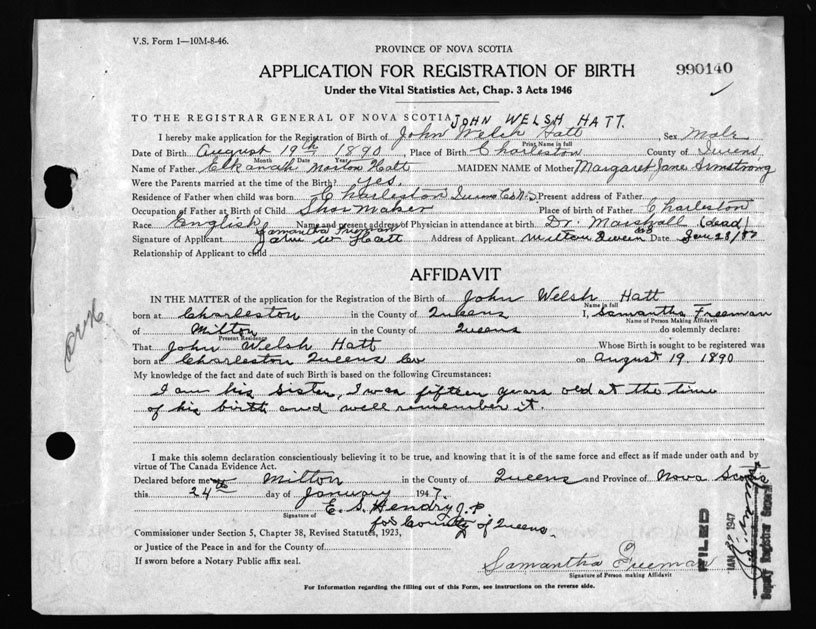 V.S. Form 1—10M-8-46.
PROVINCE OF NOVA SCOTIA
APPLICATION FOR REGISTRATION OF BIRTH
990140
Under the Vital Statistics Act, Chap. 3 Acts 1946
TO THE REGISTRAR GENERAL OF NOVA SCOTIA JOHN WELSH HATT.
I hereby make application for the Registration of Birth of John Welsh Hatt, Sex Male
Print Name in full
Date of Birth August 19th 1890 Place of Birth Charleston County of Queens
Month Date Year
Name of Father Elkanah Morton Hatt MAIDEN NAME of Mother Margaret Jane Armstrong
Were the Parents married at the time of the Birth? yes.
Residence of Father when child was born Charleston Queens Co N.S Present address of Father
Occupation of Father at Birth of Child Shoe Maker Place of birth of Father Charleston
Race English Name and present address of Physician in attendance at birth Dr. Marshall (dead)
Samantha Freeman
Signature of Applicant John W Hatt Address of Applicant Milton Queens Co Date Jan 28/47
Relationship of Applicant to child
AFFIDAVIT
IN THE MATTER of the application for the Registration of the Birth of John Welsh Hatt
Name in full
born at Charleston in the County of Queens I, Samantha Freeman
Name of Person Making Affidavit
of Milton in the County of Queens do solemnly declare:
Present Residence
That John Welsh Hatt Whose Birth is sought to be registered was
born at Charleston Queens Co on August 19. 1890
My knowledge of the fact and date of such Birth is based on the following Circumstances:
I am his Sister, I was fifteen years old at the time
of his birth and well remember it.
I make this solemn declaration conscientiously believing it to be true, and knowing that it is of the same force and effect as if made under oath and by
virtue of The Canada Evidence Act.
Declared before me at Milton in the County of Queens and Province of Nova Scotia
this 24th day of January 1947.
E. S. Hendry J.P
Signature of
for County of Queens.
Commissioner under Section 5, Chapter 38, Revised Statutes, 1923,
or Justice of the Peace in and for the County of
If sworn before a Notary Public affix seal.
Samantha Freeman
Signature of Person making Affidavit
FILED
JAN 1947
Deputy Registrar General
For Information regarding the filling out of this Form, see instructions on the reverse side.